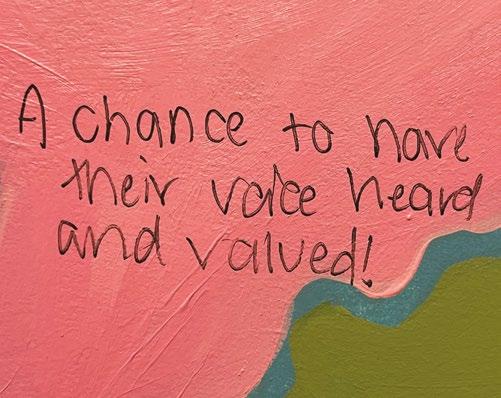 A chance to have
their voice heard
and valued!